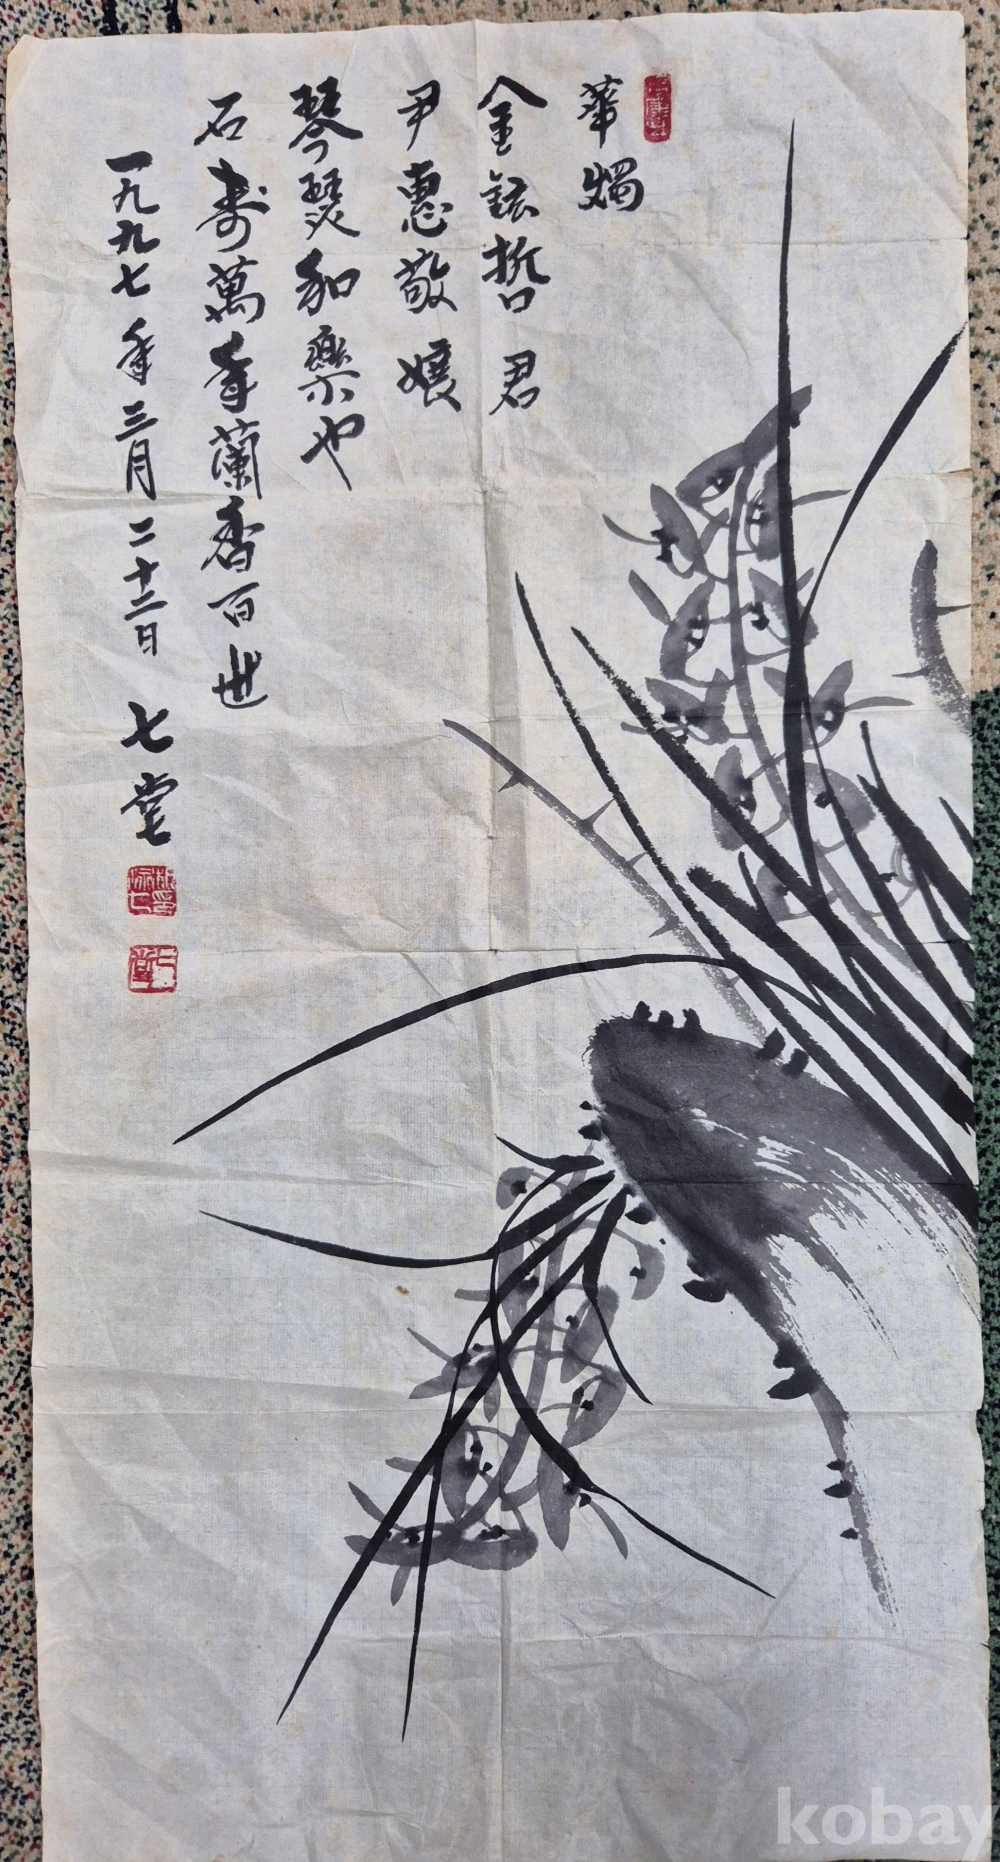 華燭
金鉉哲君
尹惠敬孃
琴瑟和樂也
石壽萬年蘭香百世
一九九七年三月二十二日 七堂
kobay